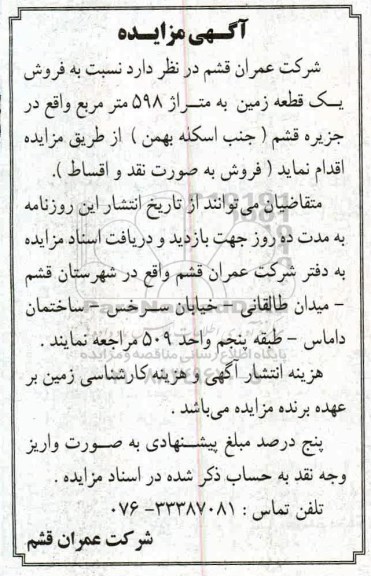 آگهی مزایده
شرکت عمران قشم در نظر دارد نسبت به فروش
یک قطعه زمین به متراژ ۵۹۸ متر مربع واقع در
جزیره قشم ( جنب اسکله بهمن ) از طریق مزایده
اقدام نماید ( فروش به صورت نقد و اقساط ).
متقاضیان می توانند از تاریخ انتشار این روزنامه
به مدت ده روز جهت بازدید و دریافت اسناد مزایده
به دفتر شرکت عمران قشم واقع در شهرستان قشم
– میدان طالقانی – خیابان سرخس – ساختمان
داماس – طبقه پنجم واحد ۵۰۹ مراجعه نمایند .
هزینه انتشار آگهی و هزینه کارشناسی زمین بر
عهده برنده مزایده می‌باشد .
پنج درصد مبلغ پیشنهادی به صورت واریز
وجه نقد به حساب ذکر شده در اسناد مزایده .
تلفن تماس : ۳۳۳۸۷۰۸۱- ۰۷۶
شرکت عمران قشم